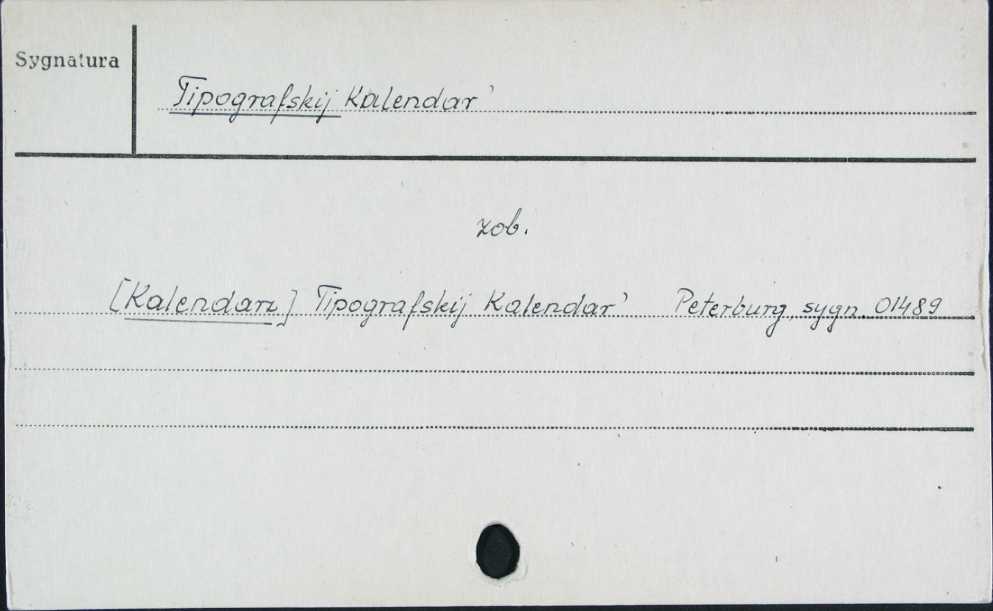 Sygnatura
Tipografskij Kalendar'
zob.
[Kalendarz] Tipografskij Kalendar' Peterburg, sygn. 01489